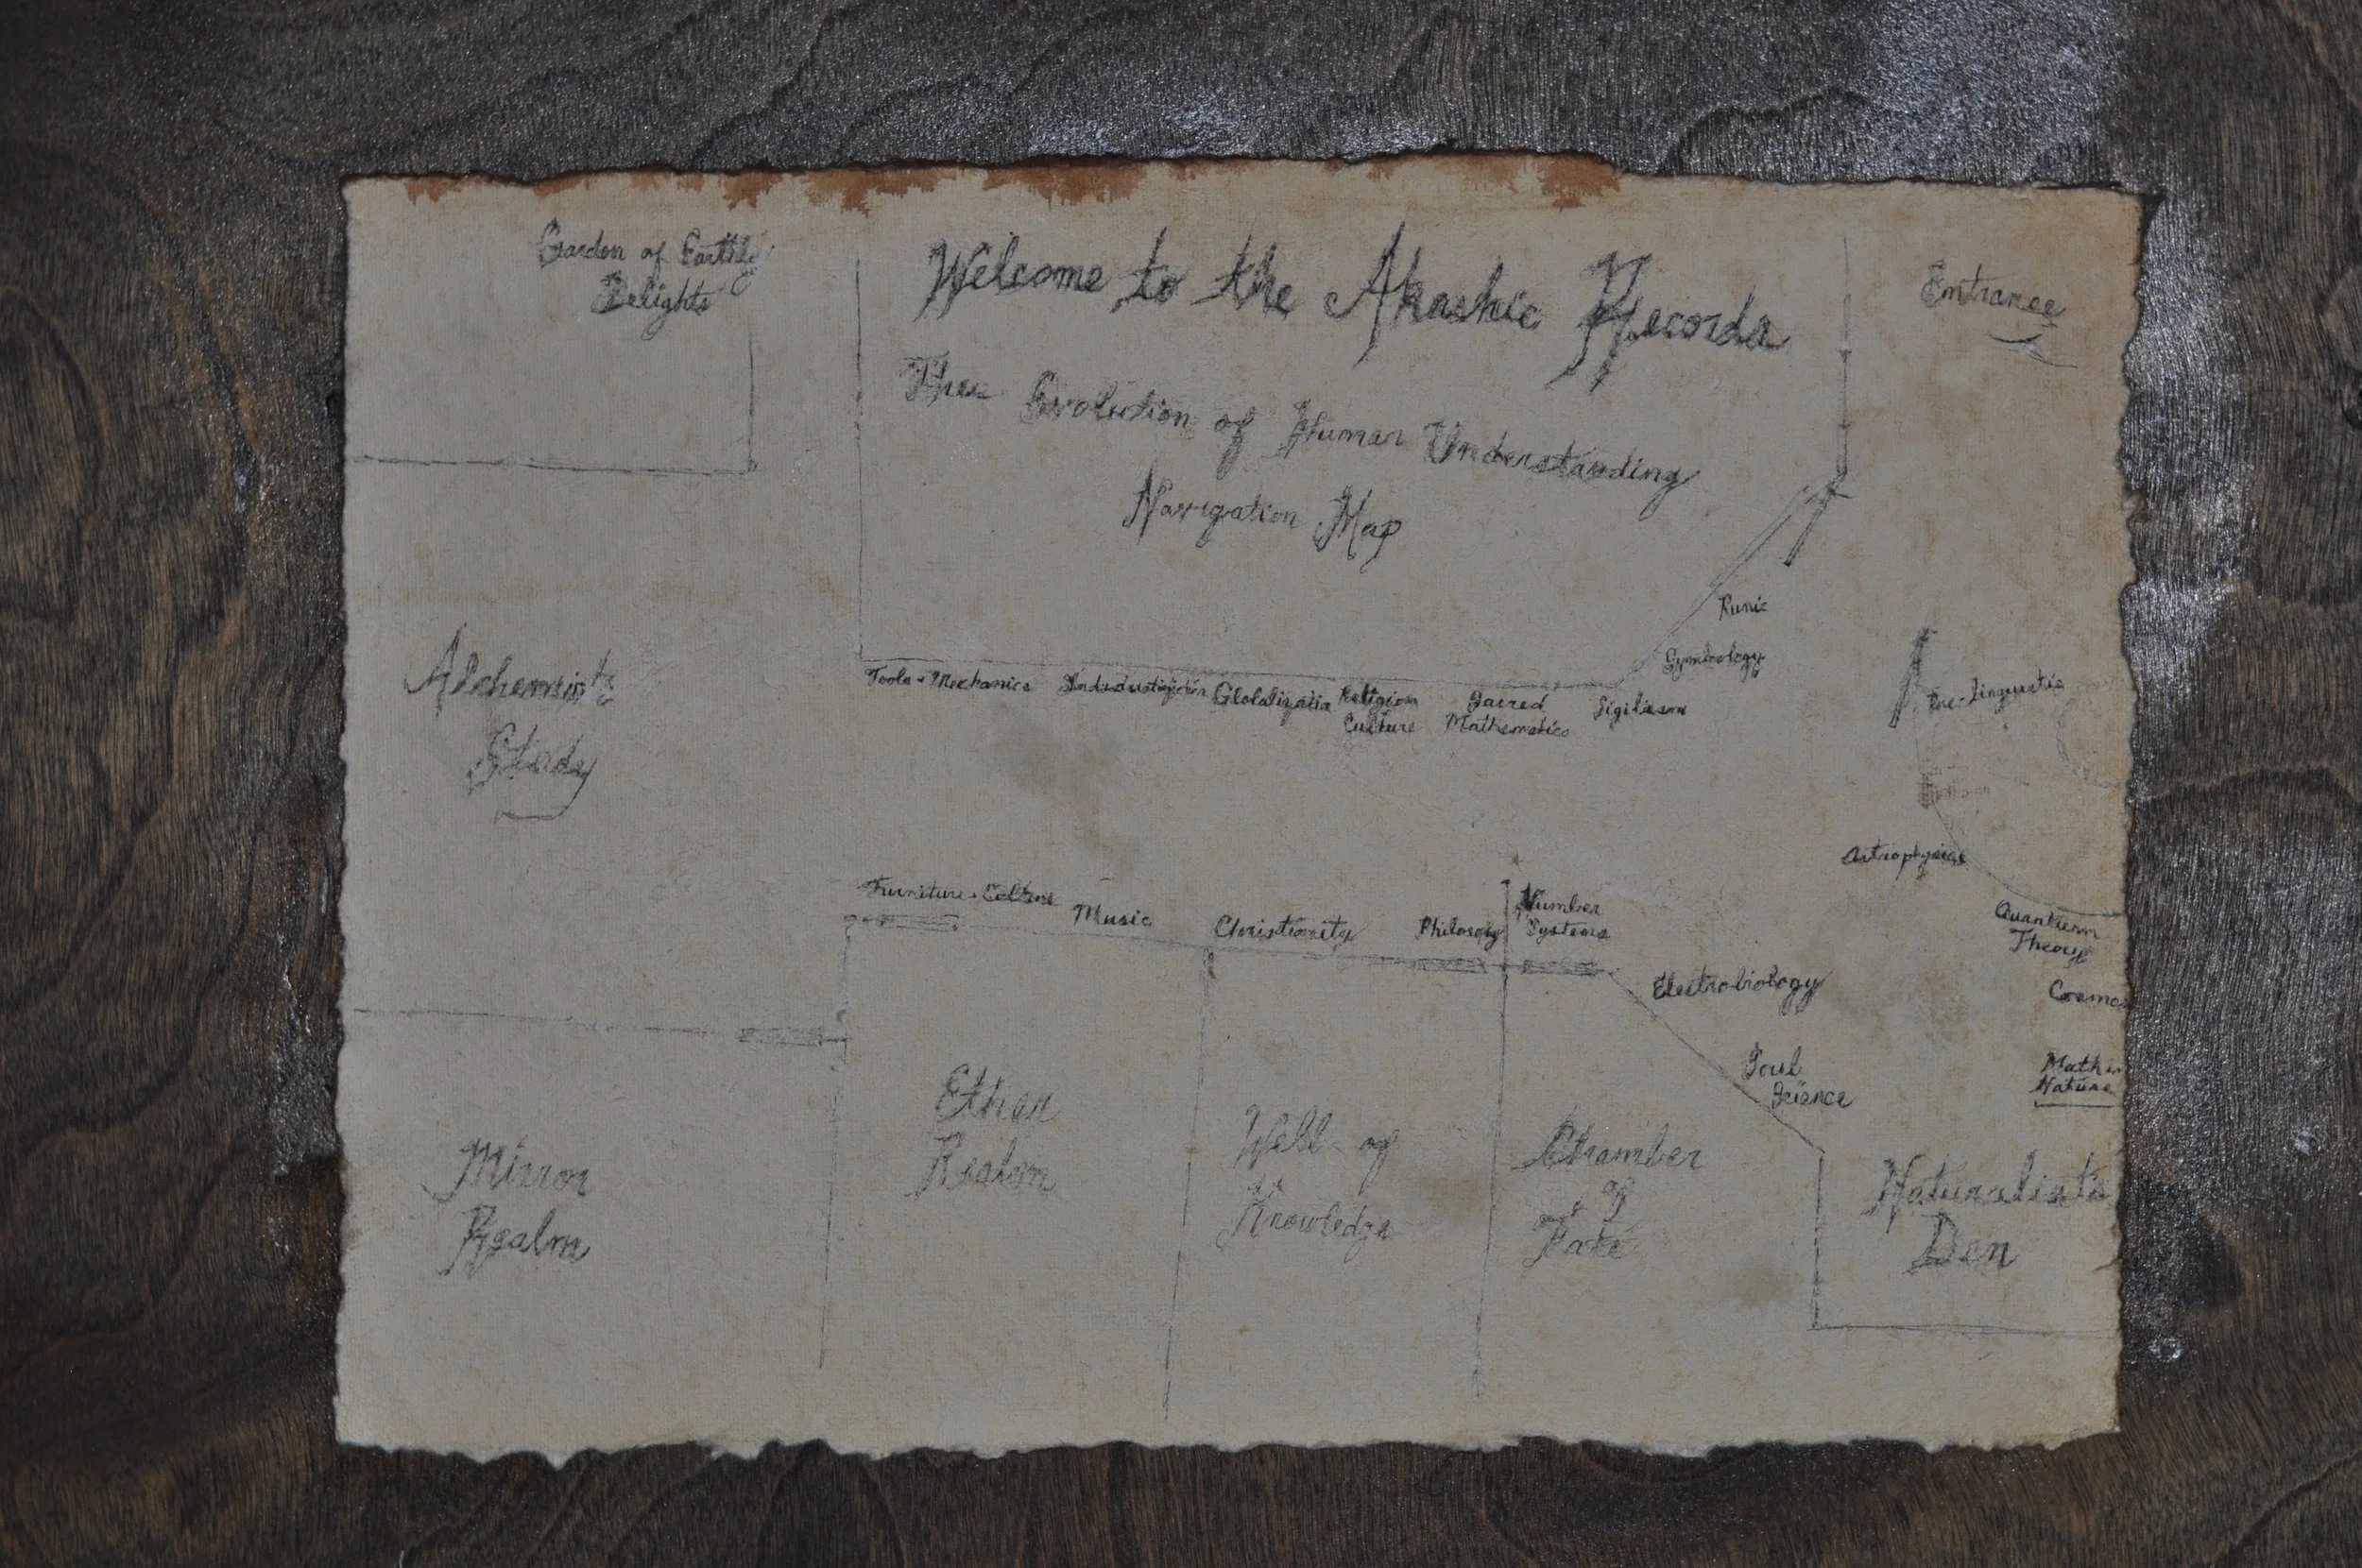 Garden of Earthly
Delights
Welcome to the Akashic Records
Entrance
The Evolution of Human Understanding
Navigation Map
Runic
Symbology
Pre-linguistic
Alchemist's
Study
Tools + Mechanics
Globalizatio
Religion
Culture
Sacred
Mathematics
Sigilism
Astrophysics
Furniture + Culture
Music
Christianity
Philosopy
Number
Systems
Quantum
Theory
Electrobiology
Cosmo
Soul
Science
Math in
Nature
Mirror
Realm
Ether
Realm
Well of
Knowledge
Chamber
of
Fate
Naturalist's
Den